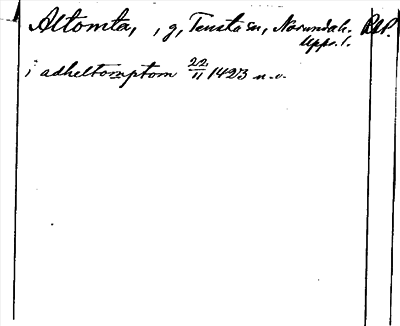 Altomta, , g, Tensta sn, Norunda h. RAP.
Upps. l.
i adheltomptom 22/11 1423 n. o.